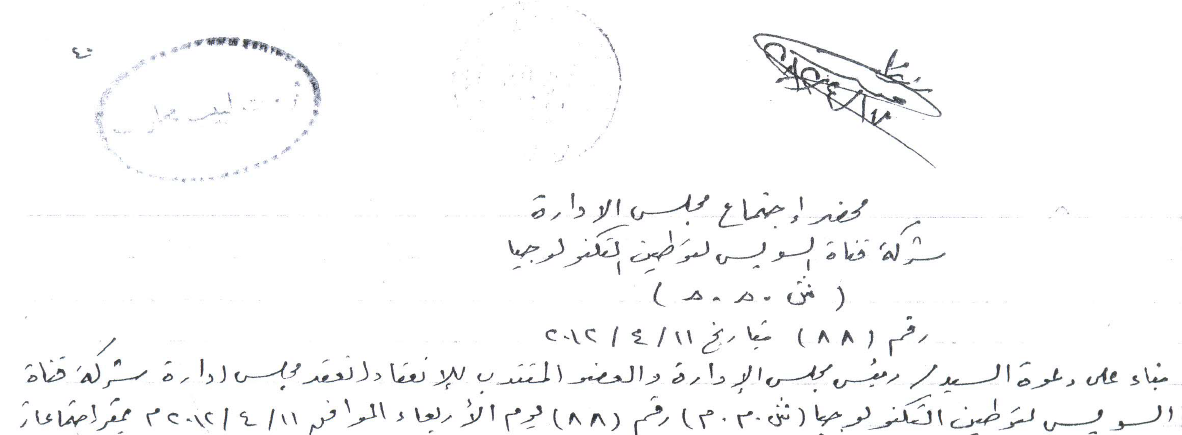 ٤٠
محضر إجتماع مجلس الادارة
شركة قناة السويس لتوطين التكنولوجيا
( ش . م . م )
رقم ( ٨٨ ) بتاريخ ١١ / ٤ / ٢٠١٢
بناء على دعوة السيد / رئيس مجلس الإدارة والعضو المنتدب للإنعقاد انعقد مجلس إدارة شركة قناة
السويس لتوطين التكنولوجيا ( ش . م . م ) رقم ( ٨٨ ) يوم الأربعاء الموافق ١١ / ٤ / ٢٠١٢ م بمقر اجتماعات